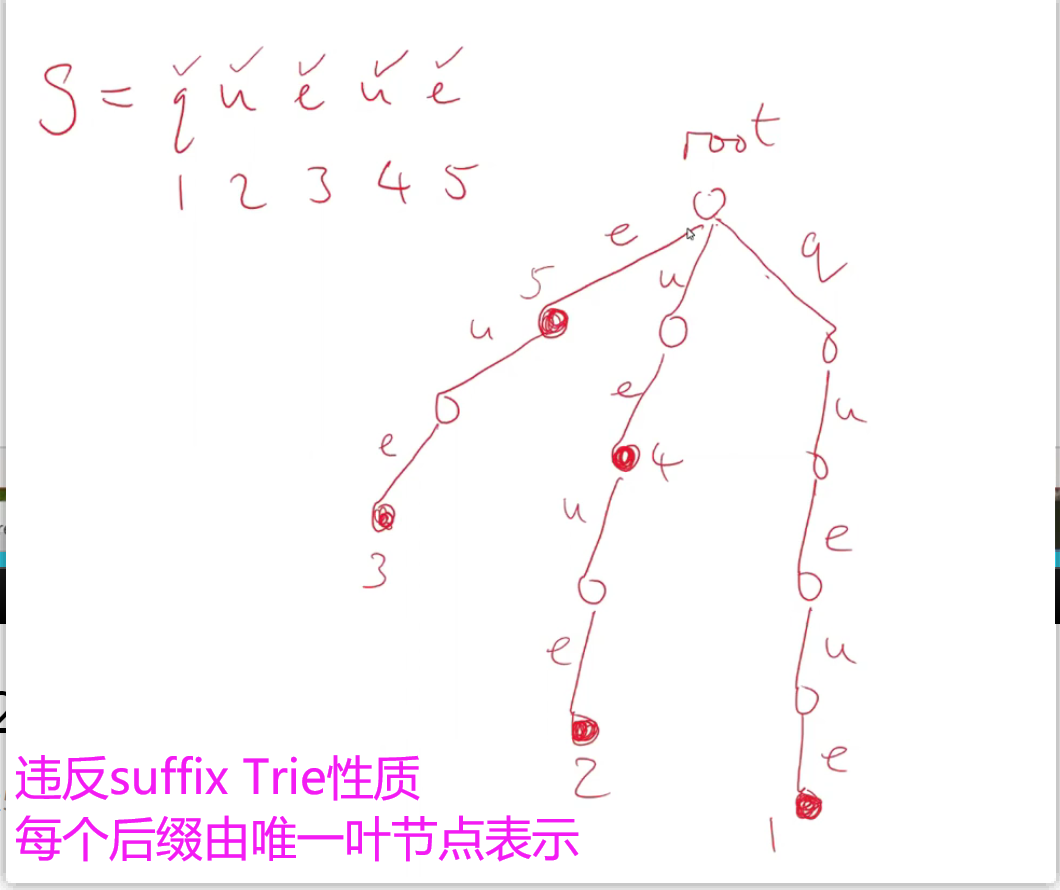 S = q u e u e
1 2 3 4 5
root
e
u
q
5
u
e
u
e
4
u
e
3
u
e
u
2
e
1
违反suffix Trie性质
每个后缀由唯一叶节点表示